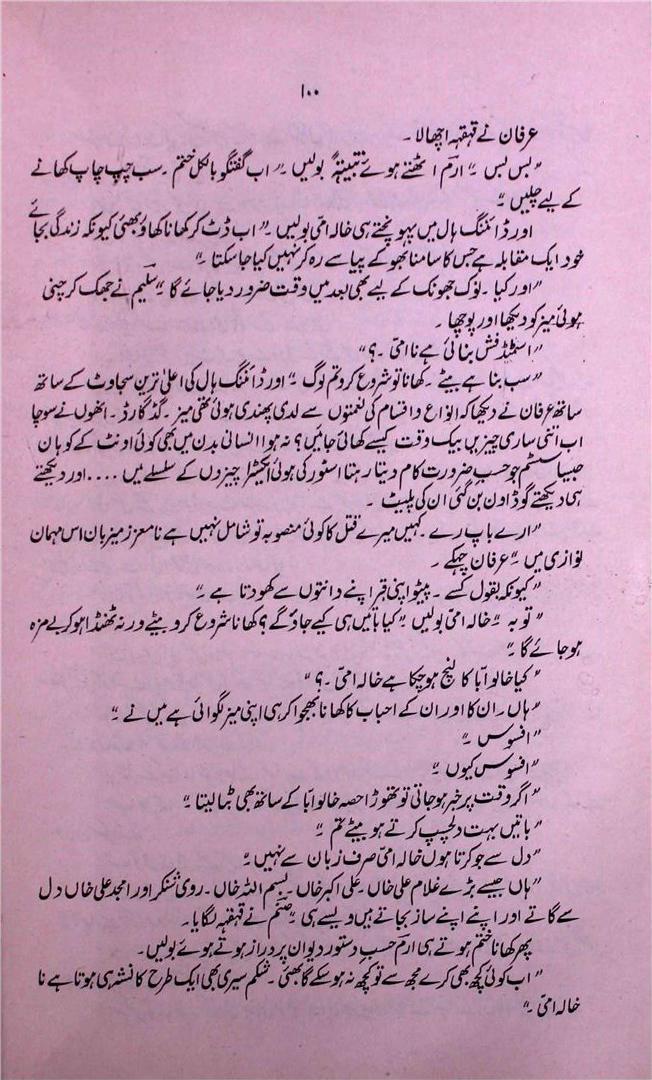 ۱۰۰
عرفان نے قہقہہ اچھالا۔
”بس بس ۔“ ارمؔ اٹھتے ہوئے تنبیہتہً بولیں ۔” اب گفتگو بالکل ختم ۔ سب چپ چاپ کھانے
کے لیے چلیں ۔“
اور ڈائننگ ہال میں پہونچتے ہی خالہ امّی بولیں ۔” اب ڈٹ کر کھانا کھاؤ بھئی کیونکہ زندگی بجائے
خود ایک مقابلہ ہے جس کا سامنا بھوکے پیاسے رہ کر نہیں کیا جا سکتا ۔“
”اور کیا ۔ نوک جھونک کے لیے بھی بعد میں وقت ضرور دیا جائے گا ۔“ سلیمؔ نے جھک کر چنی
ہوئی میز کو دیکھا اور پوچھا ۔
”اسٹیڈ فش بنائی ہے نا امّی ۔؟“
”سب بنا ہے بیٹے ۔ کھانا تو شروع کرو تم لوگ ۔“ اور ڈائننگ ہال کی اعلیٰ ترین سجاوٹ کے ساتھ
ساتھ عرفان نے دیکھا کہ انواع و اقسام کی نعمتوں سے لدی پھندی ہوئی تھی میز ۔ گڈ گارڈ ۔ انھوں نے سوچا
اب اتنی ساری چیزیں بیک وقت کیسے کھائی جائیں؟ نہ ہوا انسانی بدن میں بھی کوئی اونٹ کے کوہان
جیسا سسٹم جو حسبِ ضرورت کام دیتا رہتا اسٹور کی ہوئی ایکسٹرا چیزوں کے سلسلے میں .... اور دیکھتے
ہی دیکھتے گوڈاون بن گئی ان کی پلیٹ ۔
”ارے باپ رے ۔ کہیں میرے قتل کا کوئی منصوبہ تو شامل نہیں ہے نا معزز میزبان اس مہمان
نوازی میں ۔“ عرفان چہکے ۔
”کیونکہ بقول کسے ۔ پیٹو اپنی قبر اپنے دانتوں سے کھودتا ہے ۔“
”توبہ ۔“ خالہ امّی بولیں ۔”کیا باتیں ہی کیے جاؤ گے؟ کھانا شروع کرو بیٹے ورنہ ٹھنڈا ہو کر بے مزہ
ہو جائے گا ۔“
”کیا خالو ابّا کا لنچ ہو چکا ہے خالہ امّی ۔؟“
”ہاں ۔ ان کا اور ان کے احباب کا کھانا بھجوا کر ہی اپنی میز لگوائی ہے میں نے ۔“
”افسوس ۔“
”افسوس کیوں ۔“
”اگر وقت پر خبر ہو جاتی تو تھوڑا حصہ خالو ابّا کے ساتھ بھی بٹا لیتا ۔“
”باتیں بہت دلچسپ کرتے ہو بیٹے تم ۔“
”دل سے جو کرتا ہوں خالہ امّی صرف زبان سے نہیں ۔“
”ہاں جیسے بڑے غلام علی خاں ۔ علی اکبر خاں ۔ بسم اللہ خاں ۔ روی شنکر اور امجد علی خاں دل
سے گاتے اور اپنے اپنے ساز بجاتے ہیں ویسے ہی ۔“ صنمؔ نے قہقہہ لگایا۔
پھر کھانا ختم ہوتے ہی ارمؔ حسبِ دستور دیوان پر دراز ہوتے ہوئے بولیں۔
”اب کوئی کچھ بھی کرے مجھ سے تو کچھ نہ ہو سکے گا بھئی ۔ شکم سیری بھی ایک طرح کا نشہ ہی ہوتا ہے نا
خالہ امّی ۔“